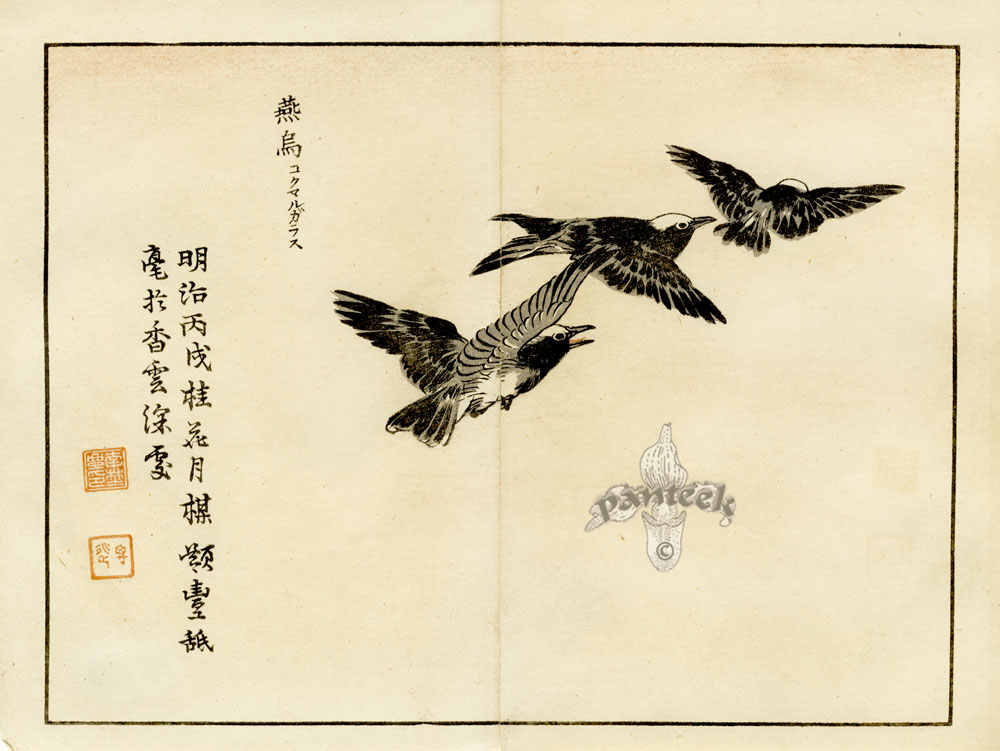 燕烏コクマルガラス
明治丙戌桂花月楳嶺豐舐
毫於香雲深處
panteek
©